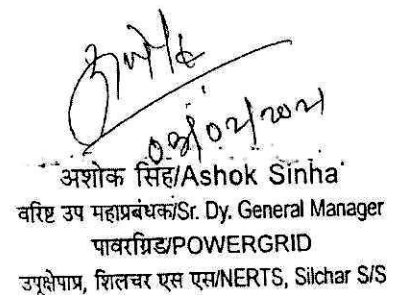 अशोक
09/02/2021
अशोक सिंह/Ashok Sinha
वरिष्ट उप महाप्रबंधक/Sr. Dy. General Manager
पावरग्रिड/POWERGRID
उपूक्षेपाप्र, शिलचर एस एस/NERTS, Silchar S/S